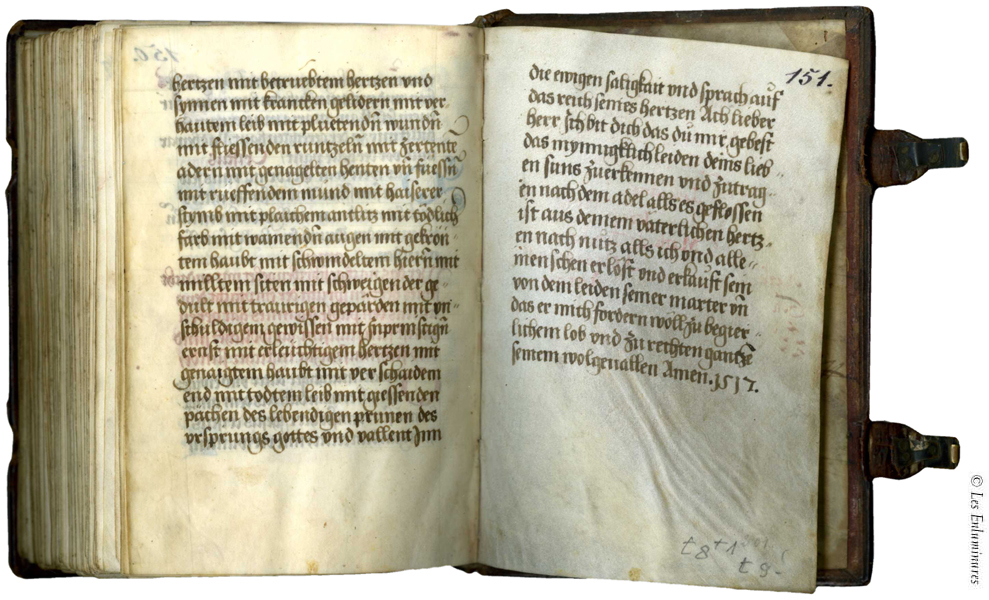 hertzen mit betruebtem hertzen vnd
synnen mit krancken gelidern mit ver
hautem leib mit pluetendn̄ wundn̄
mit fliessenden runtzeln̄ mit zertente
adern mit genagelten henten vn̄ fuessn̄
mit rueffendem mund mit haiserer
stymb mit plaichem antlitz mit tödlich
farb mit wainendn̄ augen mit gekrön-
tem haubt mit schwindeltem hiern̄ mit
milltem siten mit schweigender ge
dult mit traurigen gepärden mit vn-
schuldigem gewissen mit
ernst mit erleichtigem hertzen mit
genaigtem haubt mit verschaidem
end mit todtem leib mit giessenden
pächen des lebendigen prunen des
vrsprungs gottes vnd vallent Inn
151.
die ewigen säligkait vnd sprach auf
das reich seines hertzen Ach lieber
herr Ich bit dich das du mir gebest
das mynnigklich leiden deins lieb-
en suns zu erkennen vnd zutrag-
en nach dem adel alls es geflossen
ist aus deinem väterlichen hertz-
en nach nutz alls ich vnd alle-
menschen erlöst vnd erkauft sein
von dem leiden seiner marter vn̄
das er mich fordern woll zu begir-
lichem lob vnd zu rechten gantze
seinem wolgeuallen Amen. 1517.
t8 +1
t9-
© Les Enluminures